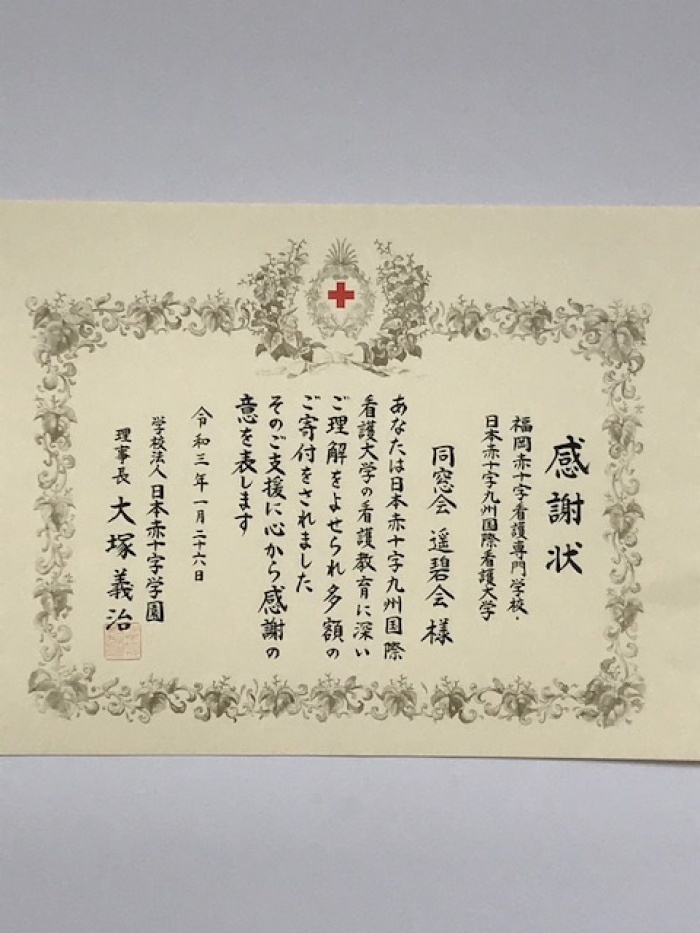 感謝状
福岡赤十字看護専門学校・
日本赤十字九州国際看護大学
同窓会 遥碧会 様
あなたは日本赤十字九州国際
看護大学の看護教育に深い
ご理解をよせられ多額の
ご寄付をされました
そのご支援に心から感謝の
意を表します
令和三年一月二十六日
学校法人日本赤十字学園
理事長 大塚義治